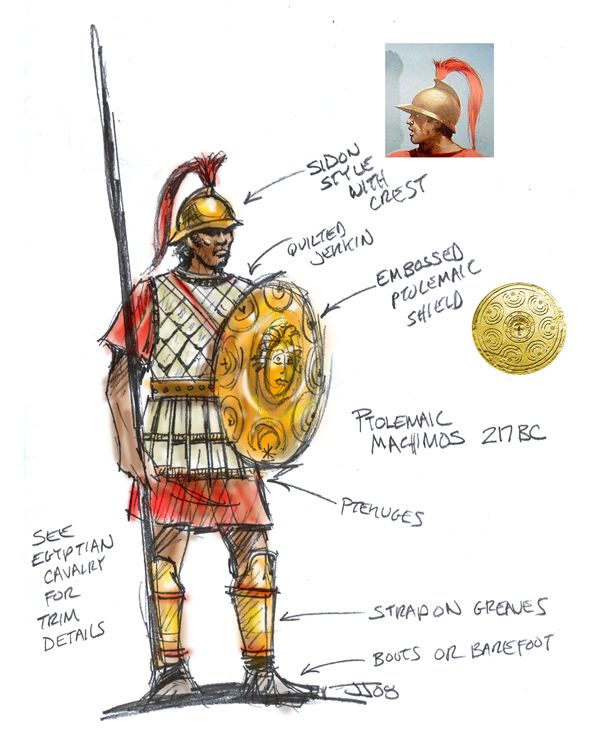 SIDON
STYLE
WITH
CREST
QUILTED
JERKIN
EMBOSSED
PTOLEMAIC
SHIELD
PTOLEMAIC
MACHIMOS 217 BC
PTERUGES
SEE
EGYPTIAN
CAVALRY
FOR
TRIM
DETAILS
STRAP ON GREAVES
BOOTS OR BAREFOOT
JJ08